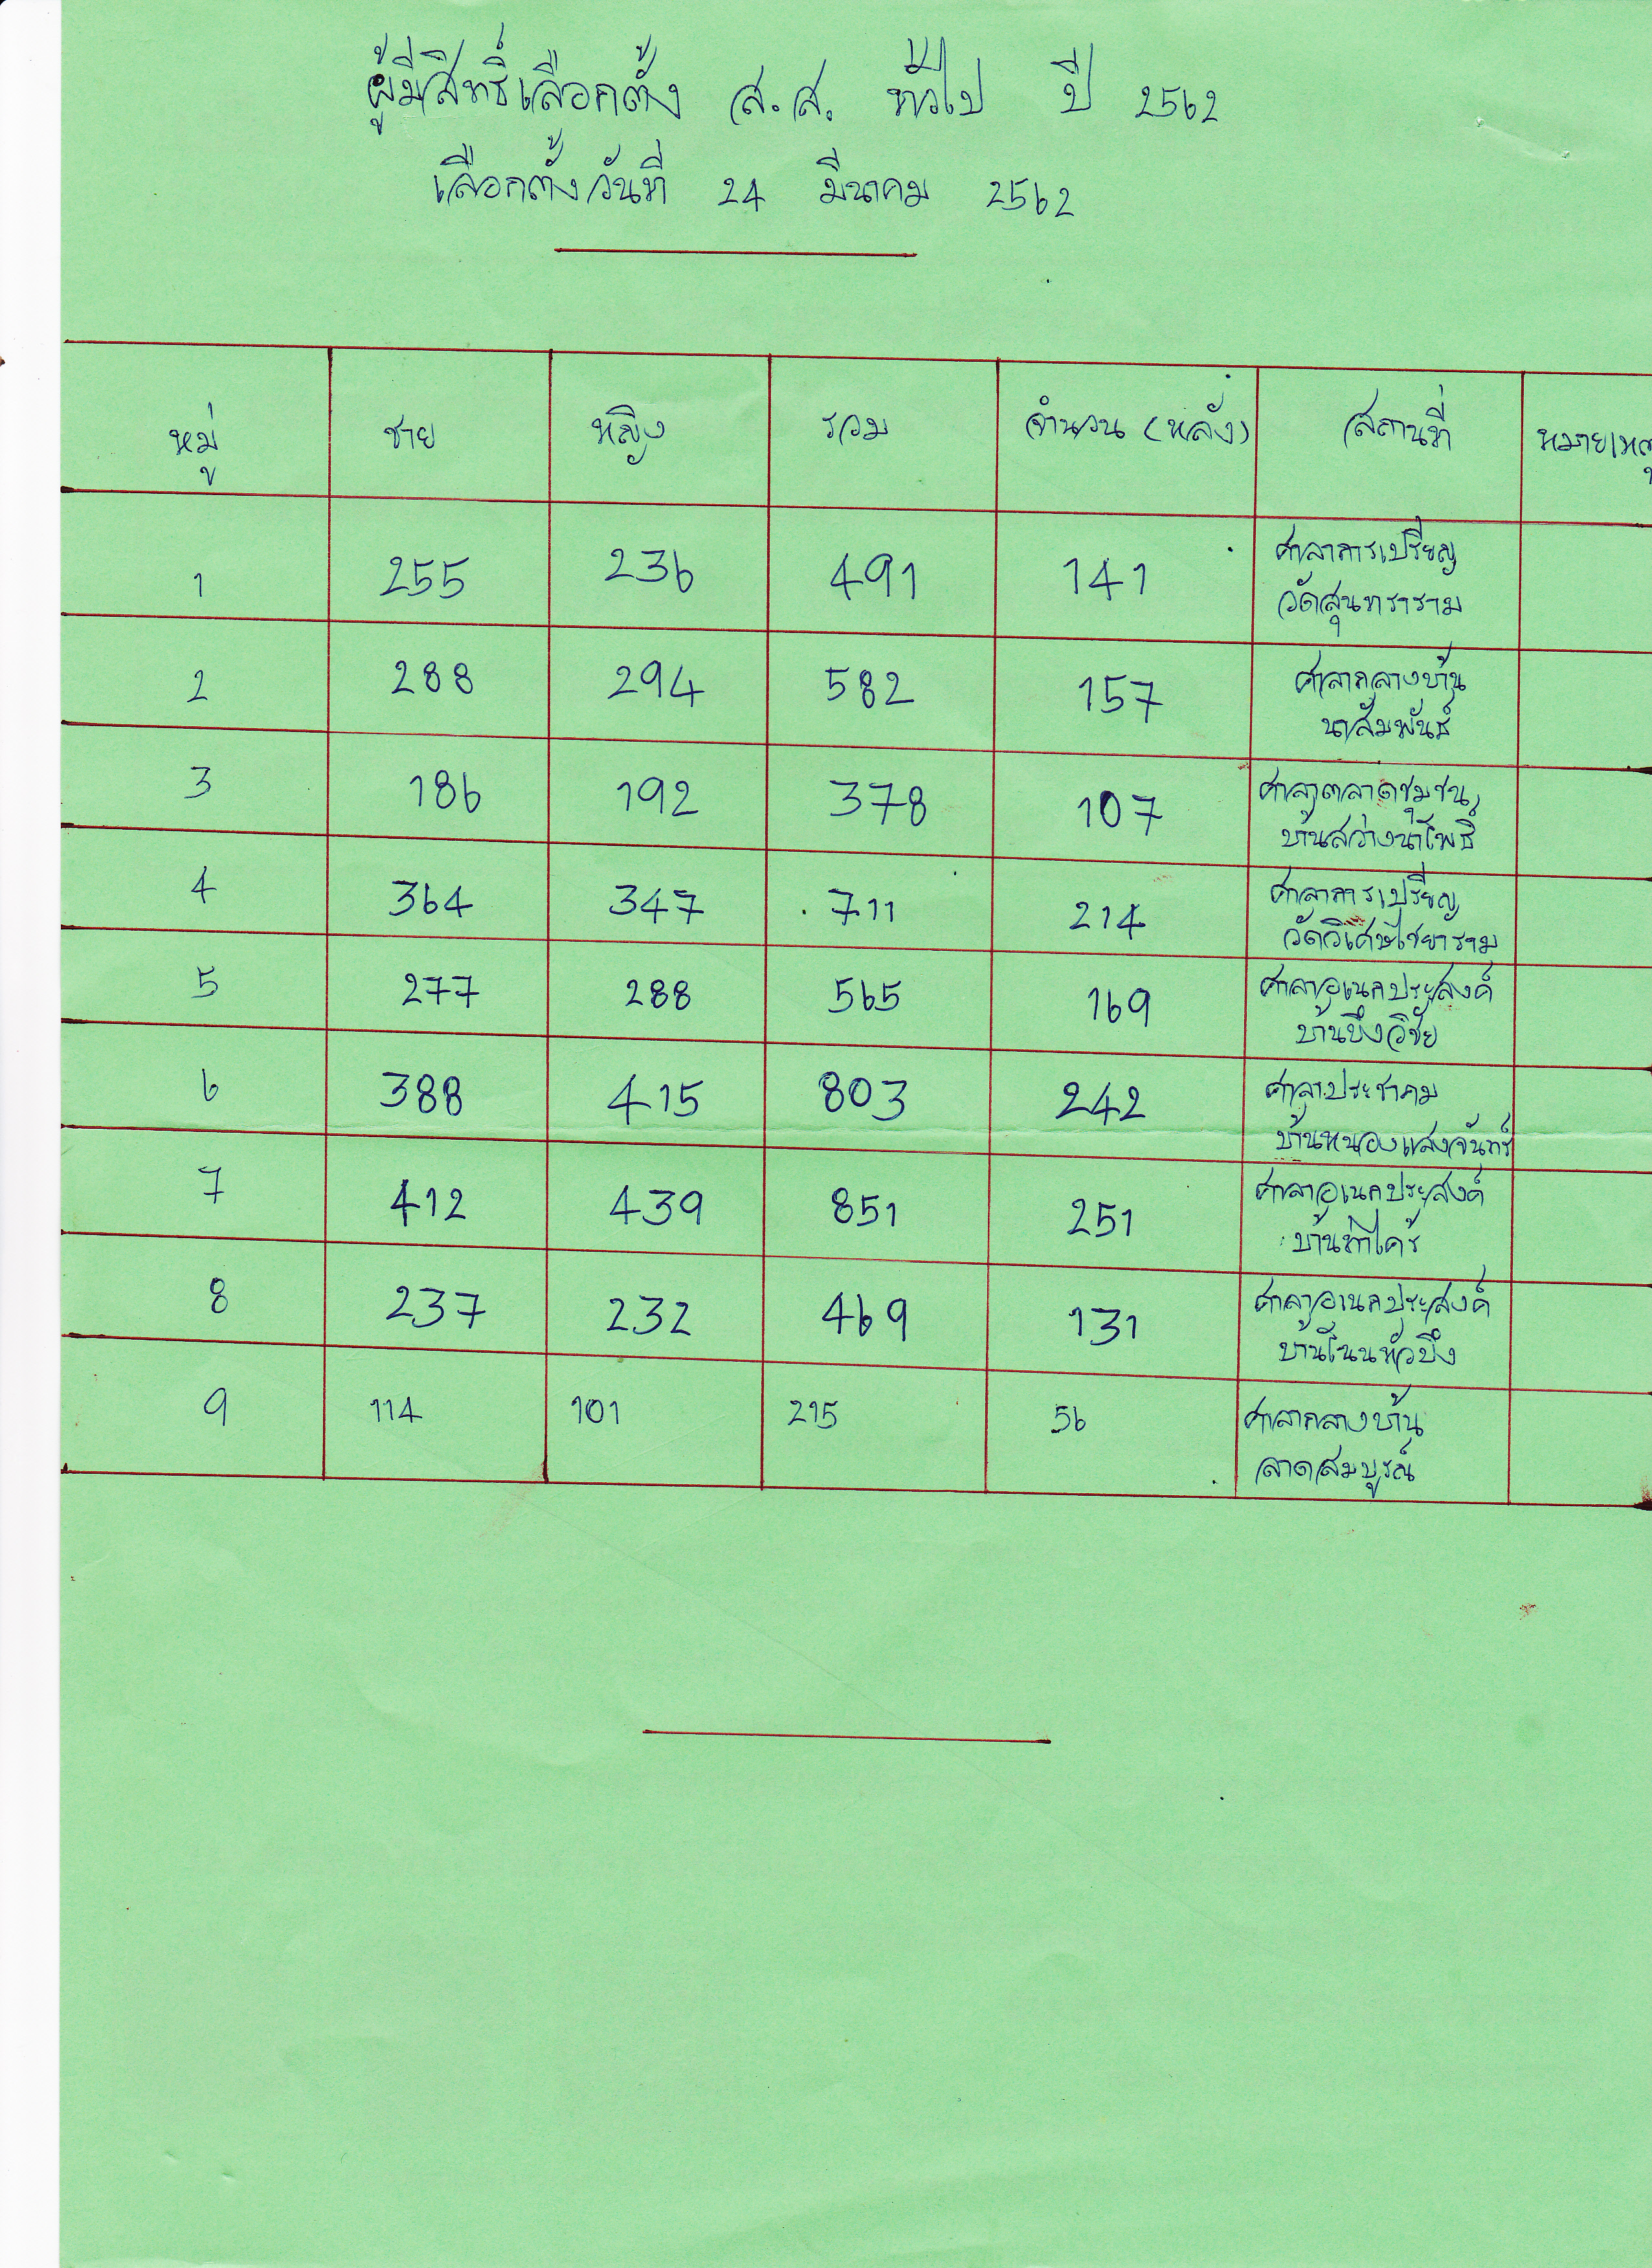 ผู้มีสิทธิ์เลือกตั้ง ส.ส. ทั่วไป ปี 2562
เลือกตั้งวันที่ 24 มีนาคม 2562
หมู่ ชาย หญิง รวม จำนวน (หลัง) สถานที่ หมายเหตุ
1 255 236 491 141 ศาลาการเปรียญ
วัดสุนทราราม
2 288 294 582 157 ศาลากลางบ้าน
นาสัมพันธ์
3 186 192 378 107 ศาลาตลาดชุมชน
บ้านสว่างนาโพธิ์
4 364 347 711 214 ศาลาการเปรียญ
วัดวิเศษไชยาราม
5 277 288 565 169 ศาลาอเนกประสงค์
บ้านบึงวิชัย
6 388 415 803 242 ศาลาประชาคม
บ้านหนองแสงจันทร์
7 412 439 851 251 ศาลาอเนกประสงค์
บ้านท่าไคร้
8 237 232 469 131 ศาลาอเนกประสงค์
บ้านโนนหัวบึง
9 114 101 215 56 ศาลากลางบ้าน
ลาดสมบูรณ์